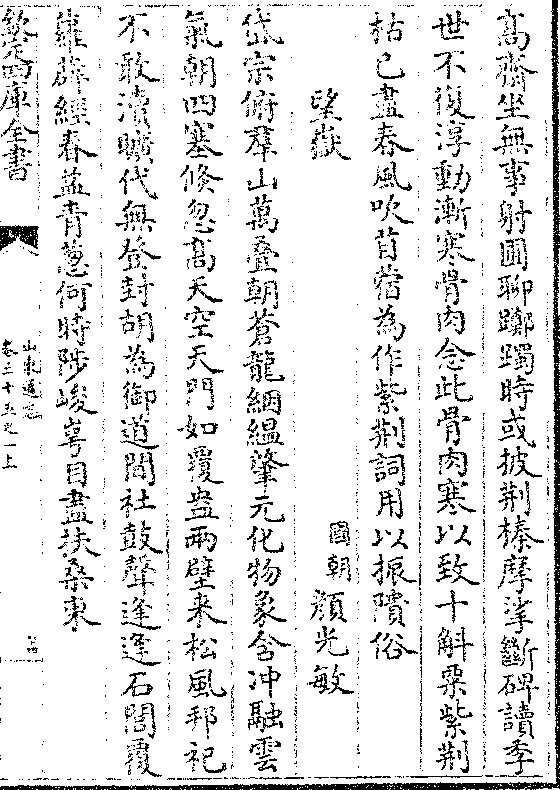 高齋坐無事射圃聊躑躅時或披荆榛摩挲斷碑讀季
世不復淳動漸寒骨肉念此骨肉寒以致十斛粟紫荆
枯已盡春風吹苜蓿為作紫荆詞用以振隤俗
望嶽
國朝顔光敏
岱宗俯羣山萬疊朝蒼龍絪緼肇元化物象含冲融雲
氣朝四塞倐忽高天空天門如覆盎兩壁来松風邦祀
不敢瀆曠代無登封胡為御道間社鼓聲逢逢石閭覆
蘿薜經春益青葱何時陟峻嶭目盡扶桑東
欽定四庫全書
山東通志
卷三十五之一上